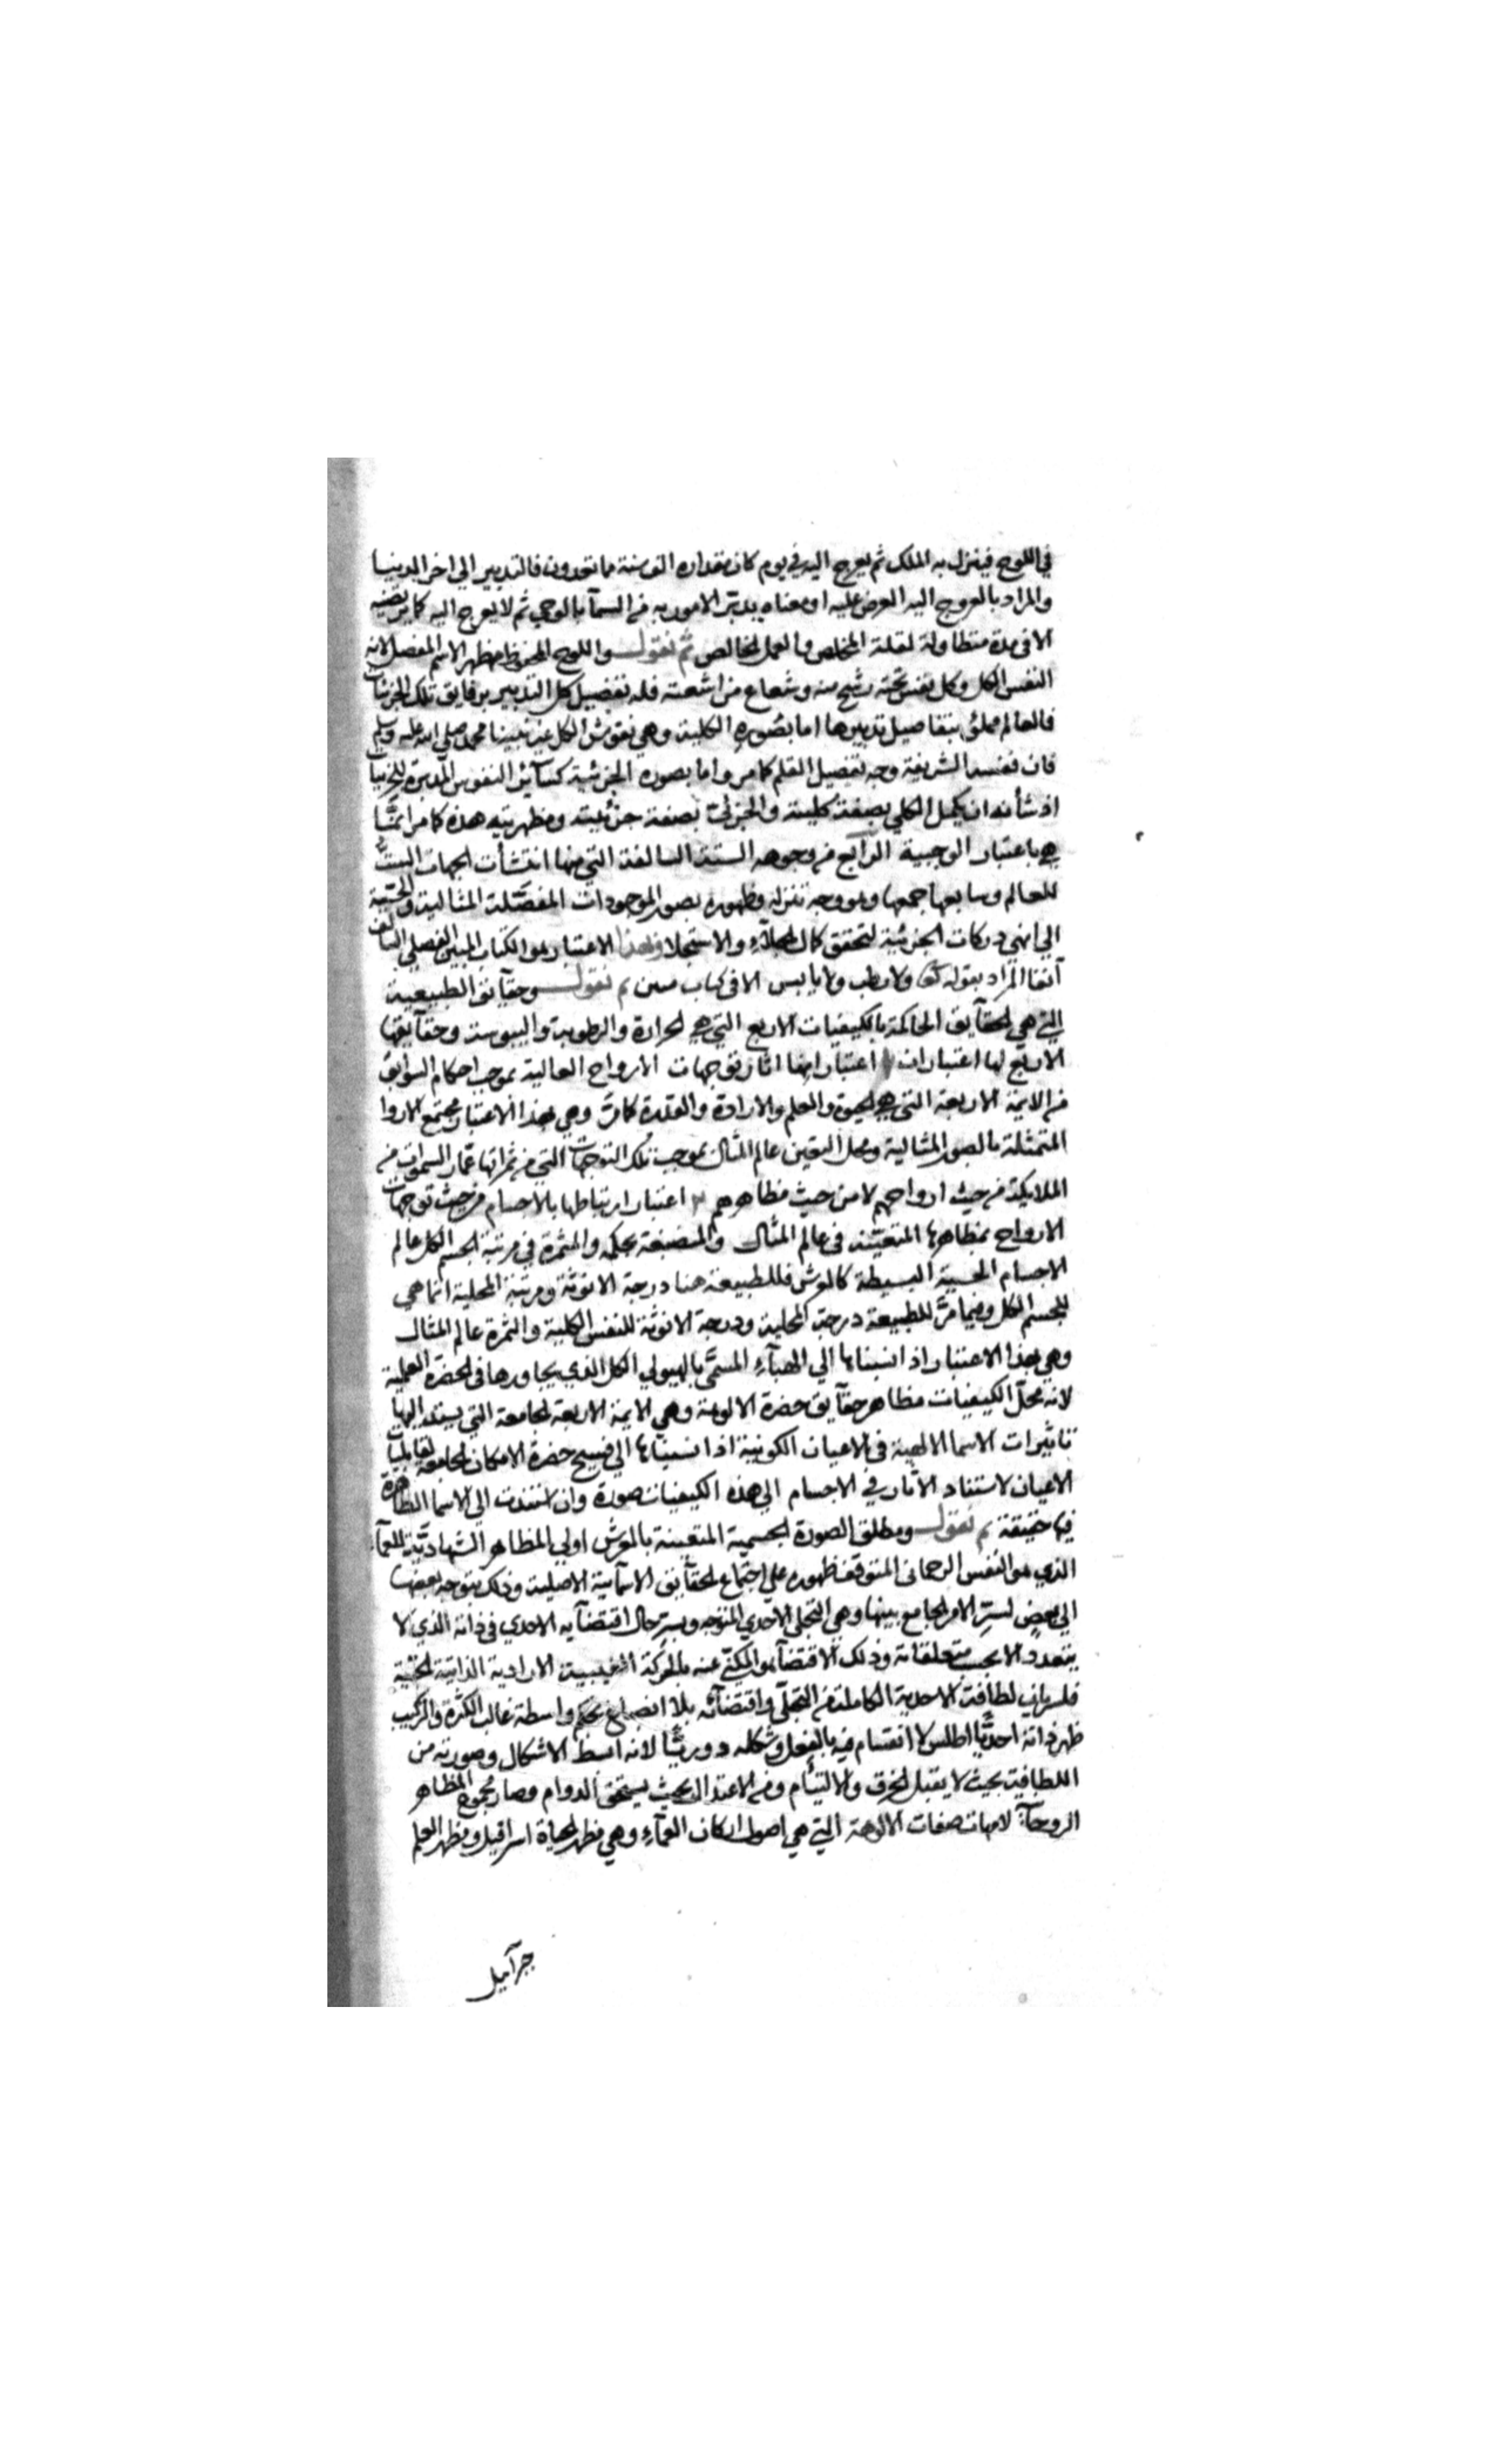 في اللوح فينزل به الملك ثم يعرج اليه في يوم كان مقداره الف سنة مما تعدون فالتدبير الي اخر الدنيا
والمراد بالعروج اليه العرض عليه او معناه يدبّر الامور به من السمآ بالوحي ثم لا يعرج اليه كما يرتضيه
الا في مدة متطاولة لقلة المخلص والعمل الخالص ثم نقول واللوح المحفوظ مظهر الاسم المفصل لانه
النفس الكل وكل نفس تحته رشح منه وشعاع من اشعته فله تفصيل كل التدبير برقايق تلك الجزئيات
فالعالم مملئ بتفاصيل تدبيرها اما بصوره الكلية وهي نفوس الكل غير نبينا محمد صلي الله عليه وسلم
فان نفسه الشريفة وجه تفصيل القلم كما مر واما بصوره الجزئية كسآئر النفوس المدبرة للجزئيات
اذ شأنه ان يكمل الكلي بصفة كلية والجزئي بصفة جزئية ومظهريته هذه كما مر انّما
هي باعتبار الوجهية الرابع من وجوهه الستة السالفة التي منها انتشأت الجهات الست
للعالم وسابعها جمعها وهو وجه تنزله وظهوره بصور الموجودات المفصّلة المثالية والحسّية
الي انهي دركات الجزئية لتحقق كمال الجلآء والاستجلا وبهذا الاعتبار هو الكتاب المبين الفصلي السالف
آنفا المراد بقوله تع ولا رطب ولا يابس الا في كتاب مبين ثم نقول وحقايق الطبيعية
التي هي الحقآيق الحاكمة بالكيفيات الاربع التي هي الحرارة والرطوبة واليبوسة وحقآيقها
الاربع لها اعتبارات ا اعتبار انها اثار توجهات الارواح العالية بموجب احكام السوابق
من الايمة الاربعة التي هي الحيوة والعلم والارادة والقدرة كما مرّ وهي بهذا الاعتبار مجتمع الاروا
المتمثلة بالصور المثالية ومحل التعين عالم المثال بموجب تلك التوجهات التي من ثمراتها عمّار السموات من
الملايكة من حيث ارواحهم لا من حيث مظاهرهم ٢ اعتبار ارتباطها بالاجسام من حيث توجهات
الارواح بمظاهرها المتعيّنة في عالم المثال والمنصبغة بحكمه والمثمرة في مرتبة الجسم الكل عالم
الاجسام الحسية البسيطة كالعرش فللطبيعة هنا درجة الانوثة ومرتبة المحلية انما هي
للجسم الكل وفيما مرّ للطبيعة درجة المحلية ودرجة الانوثة للنفس الكلية والثمرة عالم المثال
وهي بهذا الاعتبار اذا نسبناها الي الهبآء المسمّي بالهيولي الكل الذي يجاورها في الحضرة العلمية
لانه محلّ الكيفيات مظاهر حقآيق حضرة الالوهة وهي الايمة الاربعة الجامعة التي يستند اليها
تاثيرات الاسما الالهية في الاعيان الكونية اذا نسبناها الي فسيح حضرة الامكان الجامعة لقابليات
الاعيان لاستناد الآثار في الاجسام الي هذه الكيفيات صورة وان استندت الي الاسما الظاهرة
فيها حقيقة ثم نقول ومطلق الصورة الجسمية المتعينة بالعرش اولي المظاهر الشهاديّة للعمآء
الذي هو النفس الرحماني المتوقف ظهوره علي اجتماع الحقآيق الاسمآئية الاصلية وذلك بتوجه بعضها
الي بعض لسرّ الامر الجامع بينها وهي التجلي الاحدي المتوجه وبسرّ حال اقتضآيه الاحدي في ذاته الذي لا
يتعدد الا بحسب متعلقاته وذلك الاقتضآ هو المكنّي عنه بالحركة الغيبية الارادية الذاتية الحبّية
فلسريان لطافة الاحدية الكاملة من التجلّي واقتضآئه بلا انصباغ بحكم واسطة غالب الكثرة والتركيب
ظهر ذاته احديّا اطلس لا انقسام فيه بالفعل وشكله دوريّا لانه ابسط الاشكال وصورته من
اللطافة بحيث لا يقبل الخرق والالتيأم ومن الاعتدال بحيث يستحق الدوام وصار مجموع المظاهر
الروحآنية لامهات صفات الالوهة التي هي اصول اركان العمآء وهي مظهر الحياة اسرافيل ومظهر العلم
جبرآئيل